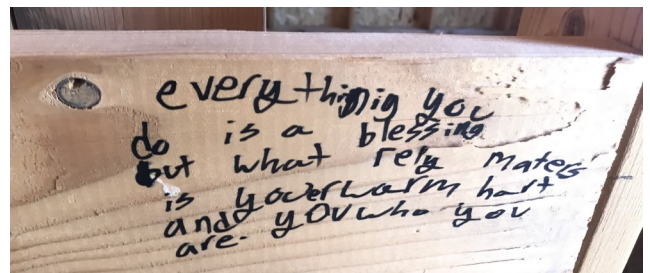 everythinig you
do is a blessing
but what rely maters
is yoverwarm hart
and yov who you
are.